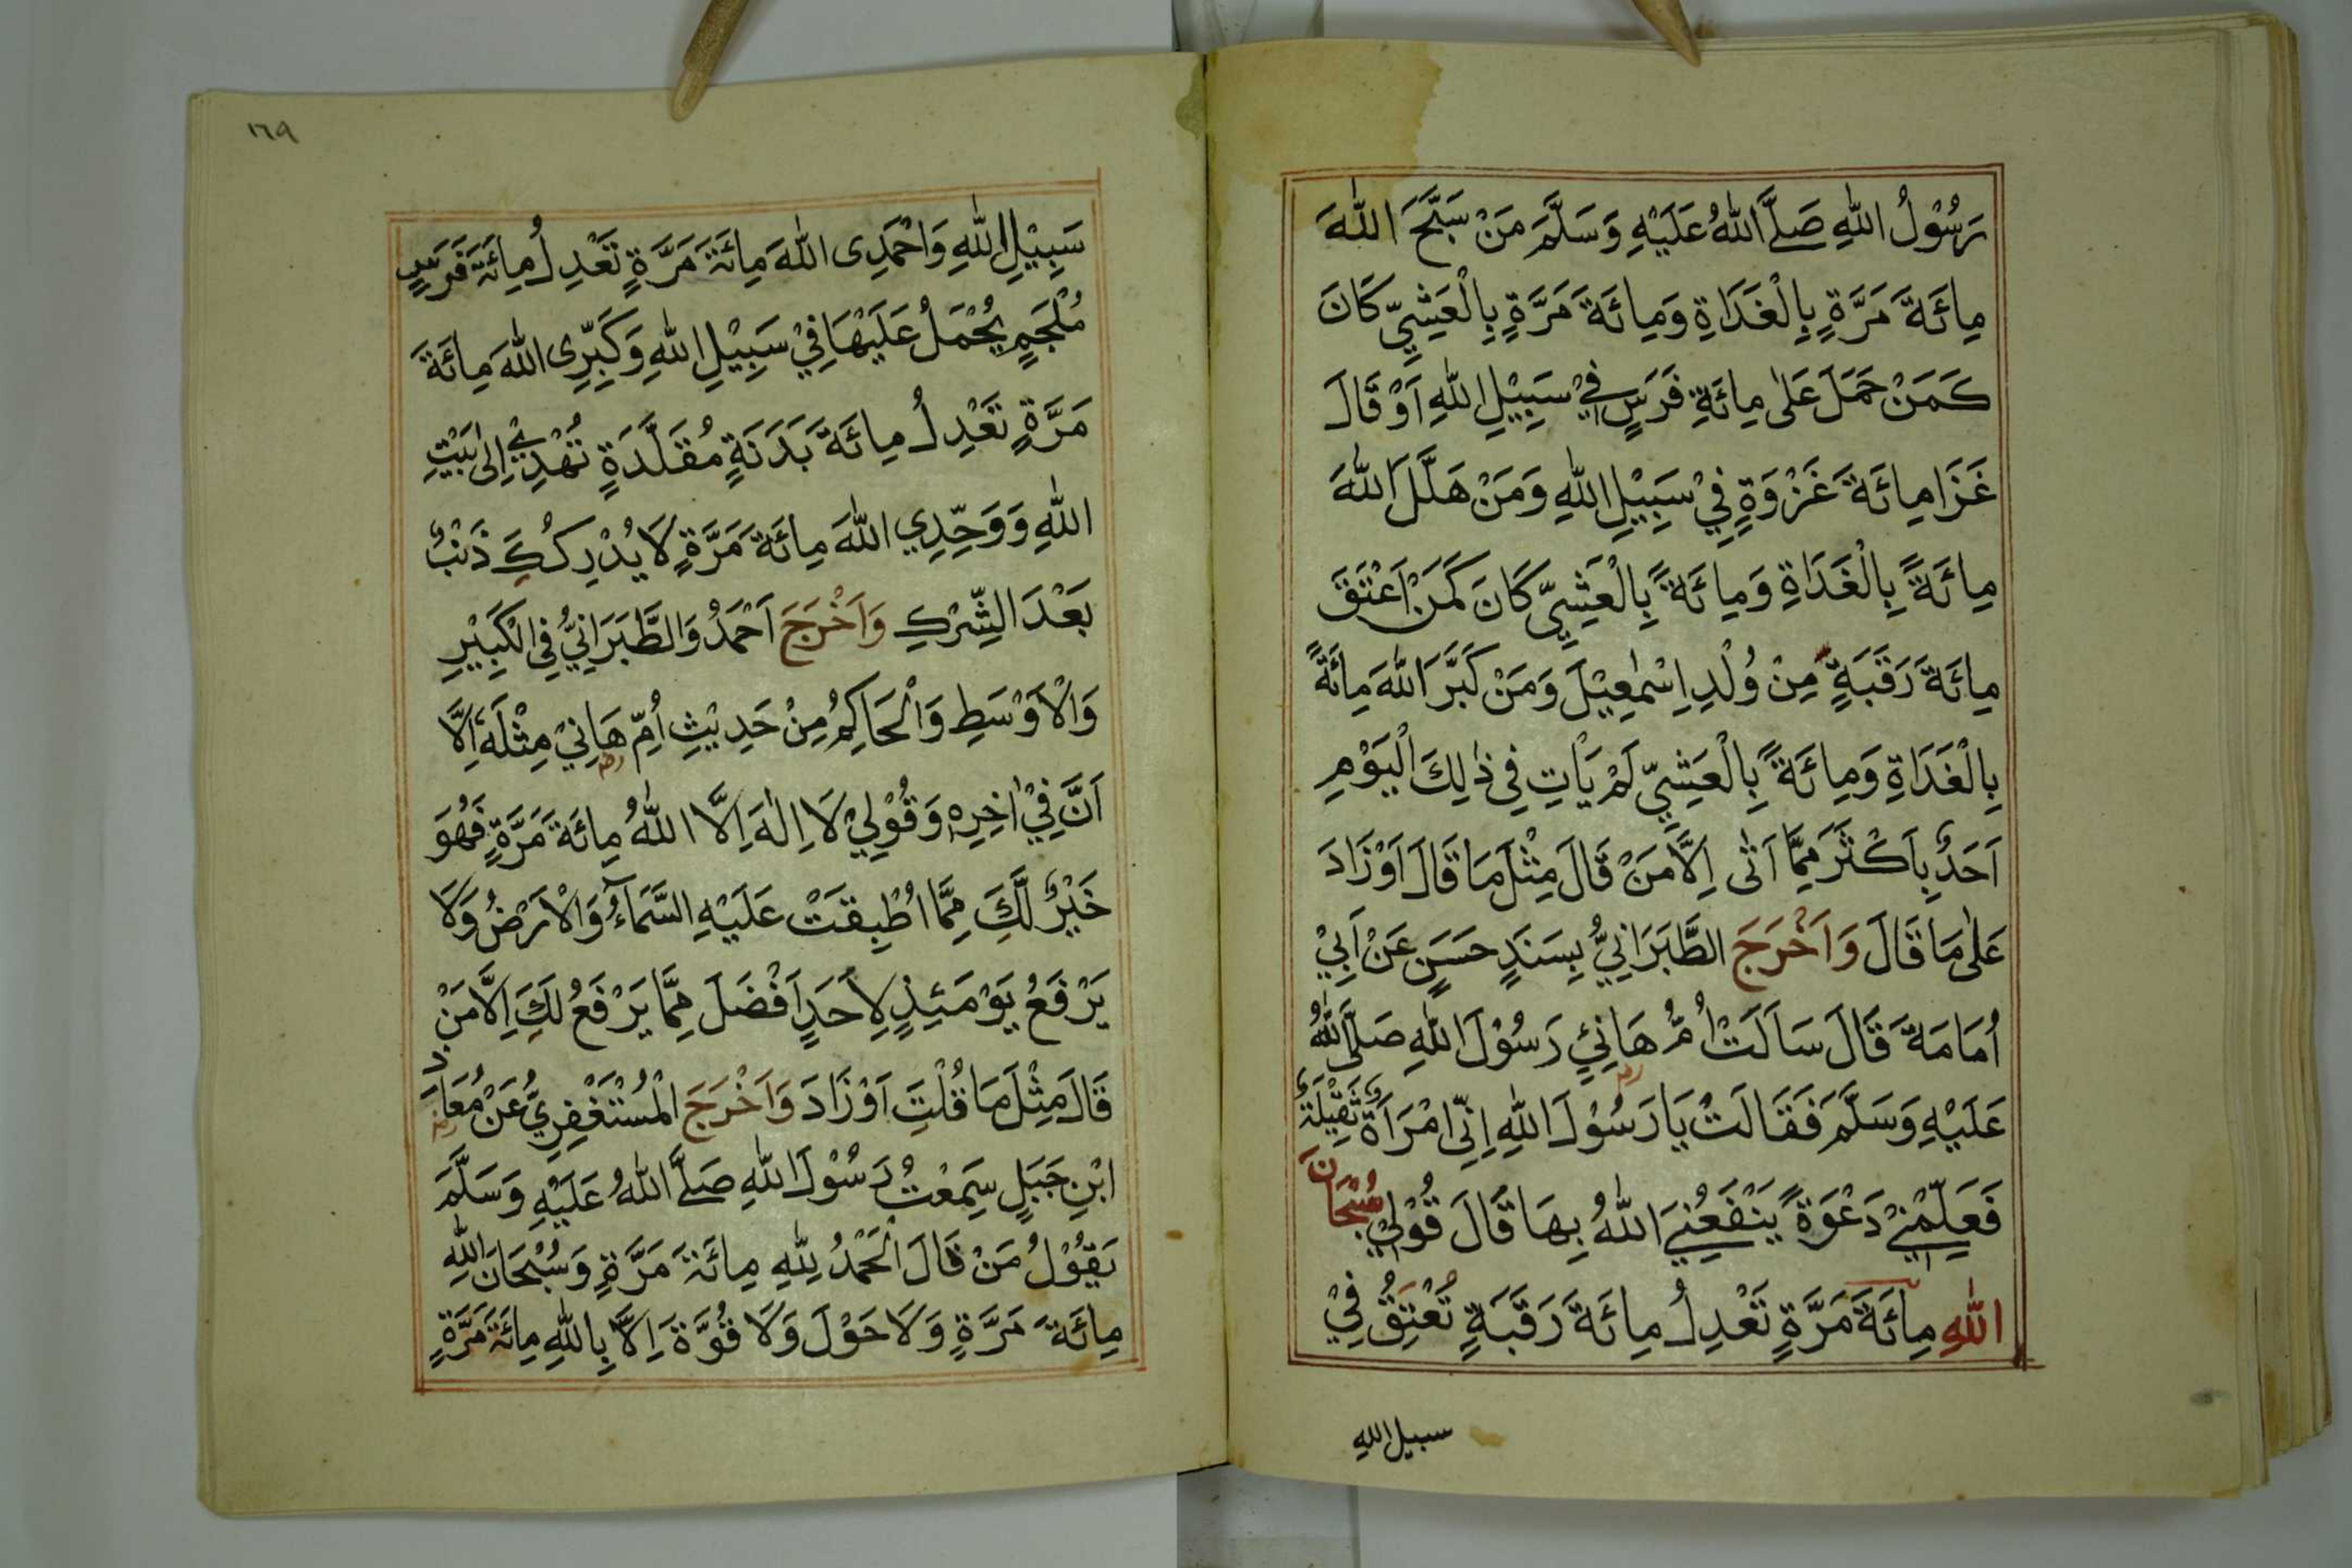 رَسُوْلُ اللّٰهِ صَلَّے اللّٰهُ عَلَيْهِ وَسَلَّمَ مَنْ سَبَّحَ اللّٰهَ
مِائَةَ مَرَّةٍ بِالْغَدَاةِ وَمِائَةَ مَرَّةٍ بِالْعَشِيِّ كَانَ
كَمَنْ حَمَلَ عَلٰى مِائَةِ فَرَسٍ فِيْ سَبِيْلِ اللّٰهِ اَوْ قَالَ
غَزَا مِائَةَ غَزْوَةٍ فِيْ سَبِيْلِ اللّٰهِ وَمَنْ هَلَّلَ اللّٰهَ
مِائَةً بِالْغَدَاةِ وَمِائَةً بِالْعَشِيِّ كَانَ كَمَنْ اَعْتَقَ
مِائَةَ رَقَبَةٍ مِنْ وُلْدِ اِسْمٰعِيْلَ وَمَنْ كَبَّرَ اللّٰهَ مِائَةً
بِالْغَدَاةِ وَمِائَةً بِالْعَشِيِّ لَمْ يَاْتِ فِي ذٰلِكَ الْيَوْمِ
اَحَدٌ بِاَكْثَرَ مِمَّا اَتٰى اِلَّا مَنْ قَالَ مِثْلَ مَا قَالَ اَوْ زَادَ
عَلٰى مَا قَالَ وَاَخْرَجَ الطَّبَرَانِيُّ بِسَنَدٍ حَسَنٍ عَنْ اَبِيْ
اُمَامَةَ قَالَ سَاَلَتْ اُمُّ هَانِئٍ رَسُوْلَ اللّٰهِ صَلَّى اللّٰهُ
عَلَيْهِ وَسَلَّمَ فَقَالَتْ يَا رَسُوْلَ اللّٰهِ اِنِّي امْرَاَةٌ ثَقِيْلَةٌ
فَعَلِّمْنِيْ دَعْوَةً يَنْفَعُنِيَ اللّٰهُ بِهَا قَالَ قُوْلِيْ سُبْحَانَ
اللّٰهِ مِائَةَ مَرَّةٍ تَعْدِلُ مِائَةَ رَقَبَةٍ تُعْتِقُ فِيْ
سبيل الله
١٦٩
سَبِيْلِ اللّٰهِ وَاحْمَدِى اللّٰهَ مِائَةَ مَرَّةٍ تَعْدِلُ مِائَةَ فَرَسٍ
مُلْجَمٍ يُحْمَلُ عَلَيْهَا فِيْ سَبِيْلِ اللّٰهِ وَكَبِّرِى اللّٰهَ مِائَةَ
مَرَّةٍ تَعْدِلُ مِائَةَ بَدَنَةٍ مُقَلَّدَةٍ تُهْدِيْ اِلٰى بَيْتِ
اللّٰهِ وَوَحِّدِي اللّٰهَ مِائَةَ مَرَّةٍ لَا يُدْرِكُكِ ذَنْبٌ
بَعْدَ الشِّرْكِ وَاَخْرَجَ اَحْمَدُ وَالطَّبَرَانِيُّ فِي الْكَبِيْرِ
وَالْاَوْسَطِ وَالْحَاكِمُ مِنْ حَدِيْثِ اُمِّ هَانِيْ مِثْلَهٗ اِلَّا
اَنَّ فِيْ اٰخِرِهٖ وَقُوْلِيْ لَا اِلٰهَ اِلَّا اللّٰهُ مِائَةَ مَرَّةٍ فَهُوَ
خَيْرٌ لَّكِ مِمَّا اُطْبِقَتْ عَلَيْهِ السَّمَآءُ وَالْاَرْضُ وَلَا
يَرْفَعُ يَوْمَئِذٍ لِاَحَدٍ اَفْضَلَ مِمَّا يَرْفَعُ لَكِ اِلَّا مَنْ
قَالَ مِثْلَ مَا قُلْتِ اَوْ زَادَ وَاَخْرَجَ الْمُسْتَغْفِرِيُّ عَنْ مُعَاذِ
ابْنِ جَبَلٍ سَمِعْتُ رَسُوْلَ اللّٰهِ صَلَّے اللّٰهُ عَلَيْهِ وَسَلَّمَ
يَقُوْلُ مَنْ قَالَ الْحَمْدُ لِلّٰهِ مِائَةَ مَرَّةٍ وَسُبْحَانَ اللّٰهِ
مِائَةَ مَرَّةٍ وَلَا حَوْلَ وَلَا قُوَّةَ اِلَّا بِاللّٰهِ مِائَةَ مَرَّةٍ